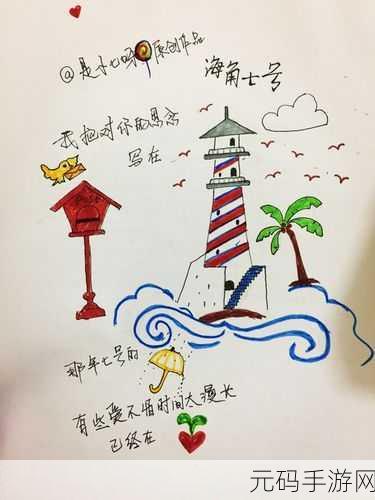 @是小七呀原创作品
海角七号
我把对你的思念
写在
POST
那年七号的
有些爱不怕时间太漫长
已经在
元码手游网